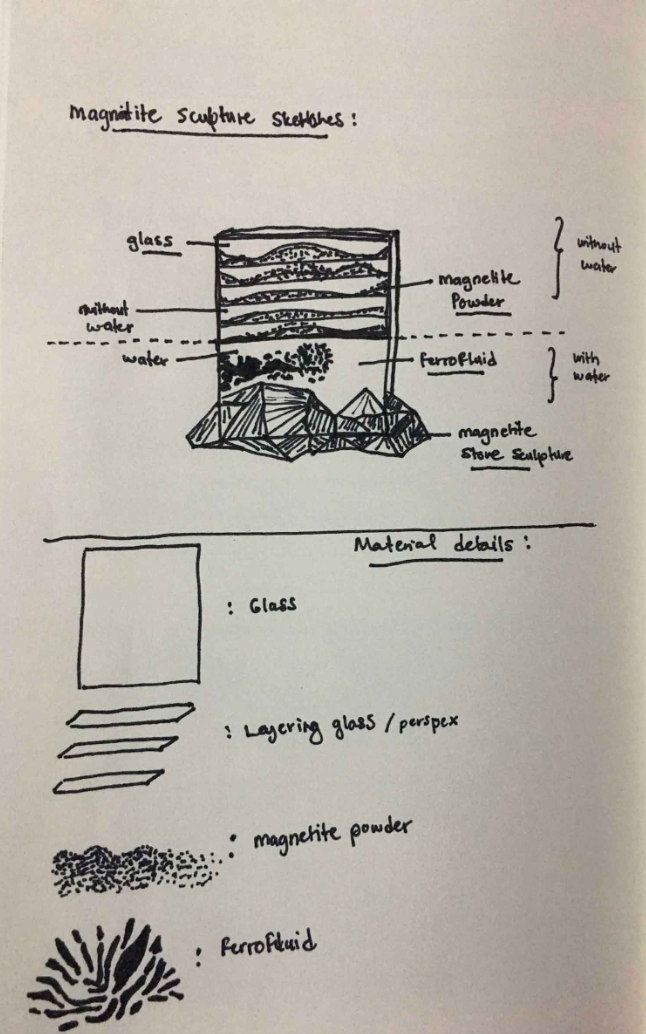 Magnetite Sculpture Sketches :
glass
without
water
magnetite
Powder
without
water
water
Ferrofluid
with
water
magnetite
Stone Sculpture
Material details :
: Glass
: Layering glass / perspex
: magnetite powder
: Ferrofluid